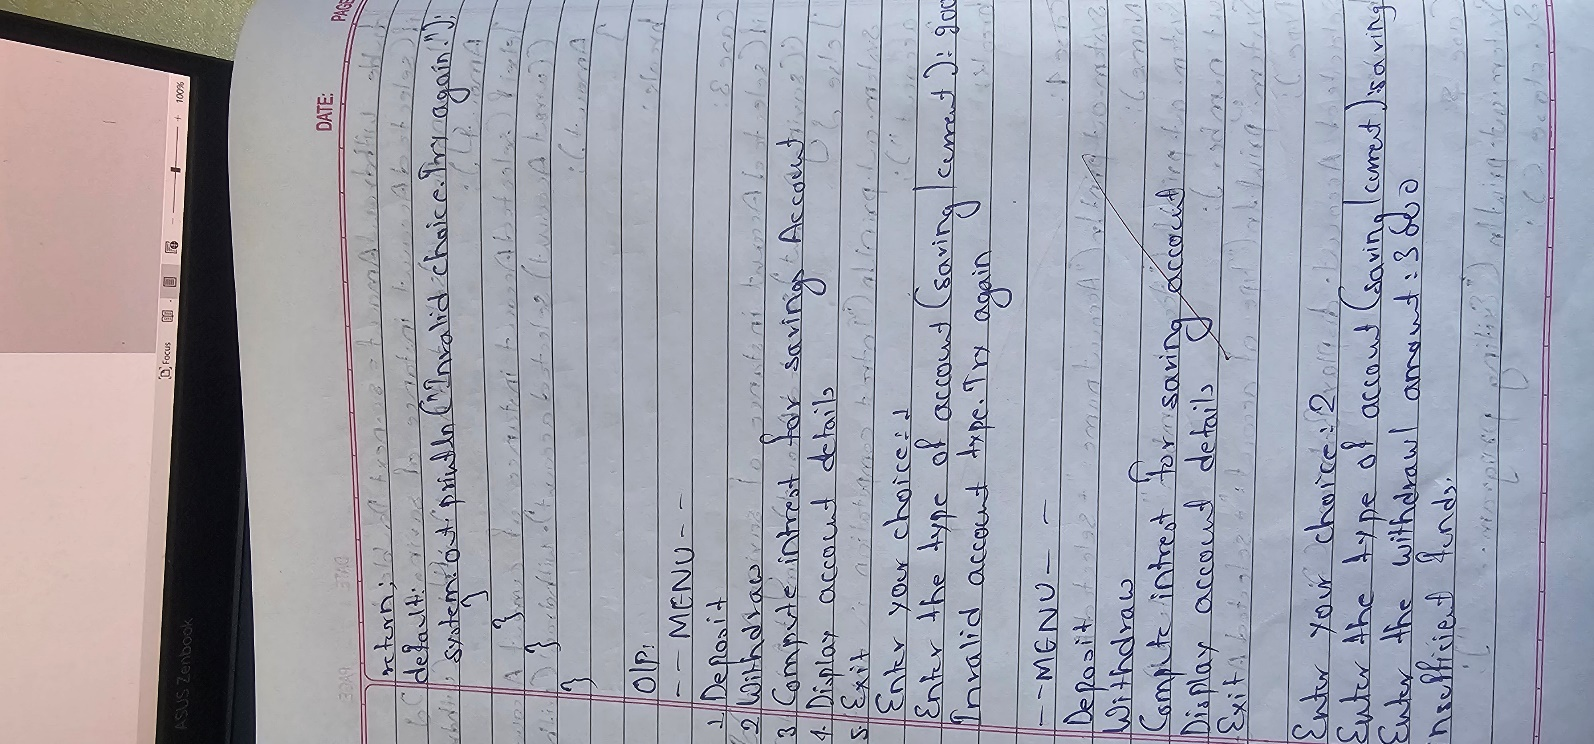 PAGE
DATE:
return;
default:
system.out.println("Invalid choice.Try again.");
}
}
}
}
O/P:
--MENU--
1. Deposit
2 Withdraw
3 Compute intrest for savings Account
4. Display account details
5. Exit
Enter your choice:1
Enter the type of account (saving/current):
Invalid account type.Try again
--MENU--
Deposit
Withdraw
Compute intrest for saving accout
Display account details
Exit
Enter your choice:2
Enter the type of accout (saving/current):saving
Enter the withdrawl amount:
nsufficient funds.
ASUS Zenbook
Focus
100%